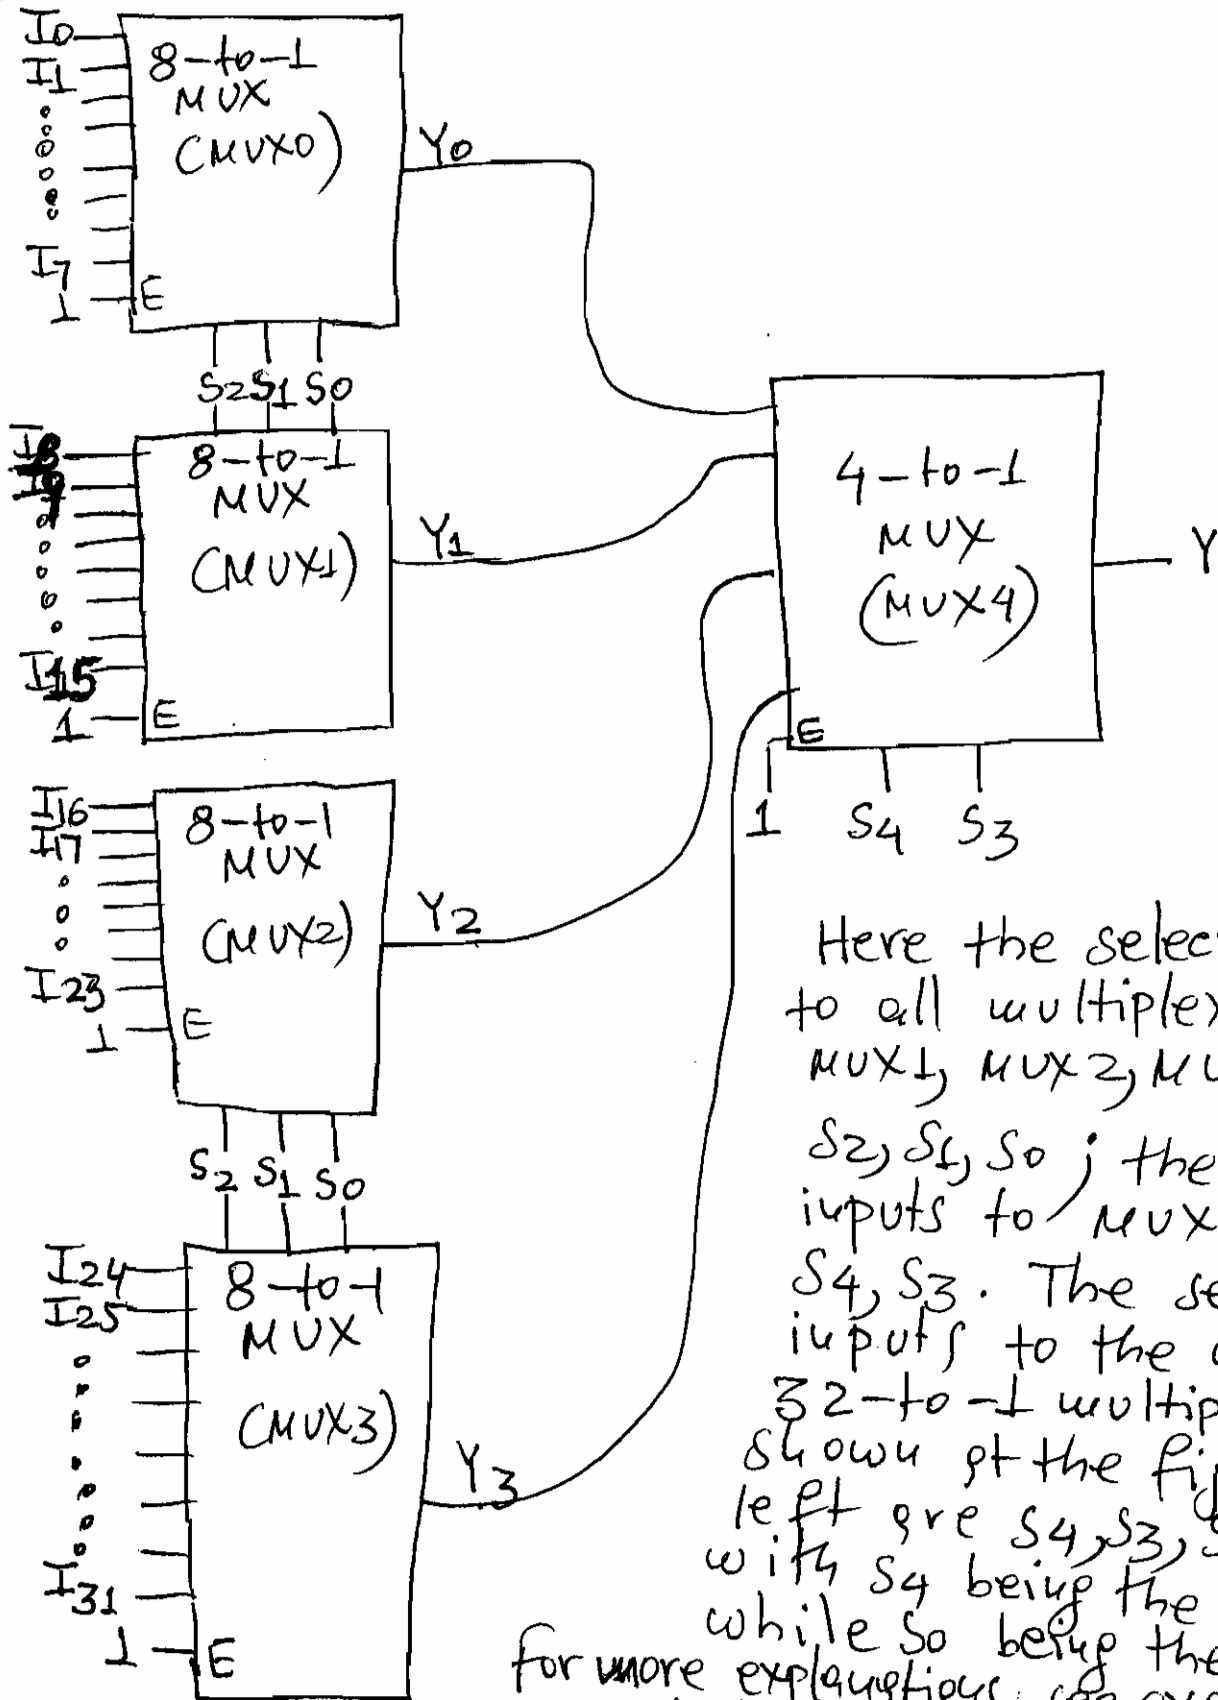 I0
I1
I7
1
8-to-1
MUX
(MUX0)
E
Y0
S2 S1 S0
I8
I9
I15
1
8-to-1
MUX
(MUX1)
E
Y1
4-to-1
MUX
(MUX4)
E
Y
1 S4 S3
I16
I17
I23
1
8-to-1
MUX
(MUX2)
E
Y2
S2 S1 S0
I24
I25
I31
1
8-to-1
MUX
(MUX3)
E
Y3
Here the selec
to all multiplex
MUX1, MUX2, MU
S2, S1, S0 ; the
inputs to MUX
S4, S3. The se
inputs to the
32-to-1 multip
shown at the fig
left are S4, S3, S
with S4 being the
while S0 being the
for more explanations